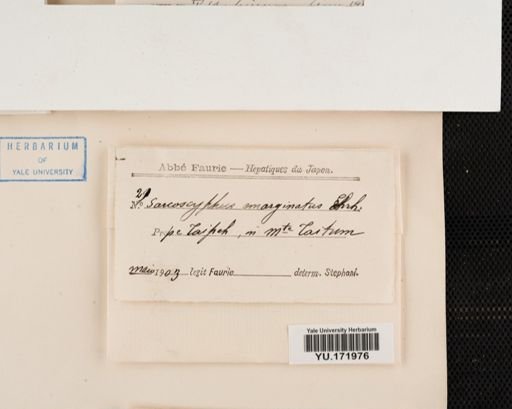 HERBARIUM
OF
YALE UNIVERSITY
Abbé Faurie — Hepatiques du Japon.
29
No Sarcoscyphus emarginatus Ehrh.
Prope Taipeh, in Mte Taitum
maio 1903 legit Faurie determ. Stephani.
Yale University Herbarium
YU.171976